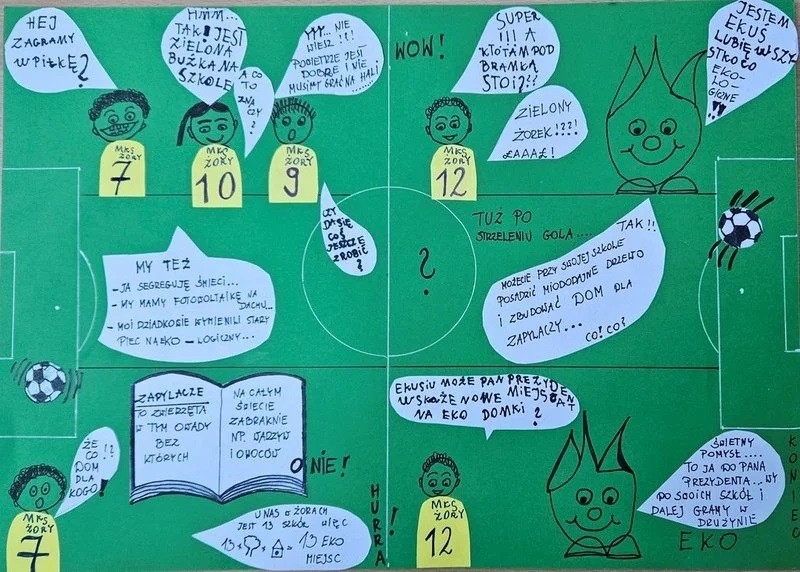 HEJ
ZAGRAMY
W PIŁKĘ?
HMM...
TAK! JEST
ZIELONA
BUŹKA NA
SZKOLE
A CO
TO
ZNA
CZY
?
YYY... NIE
WIESZ!!!
POWIETRZE JEST
DOBRE I NIE
MUSIMY GRAĆ NA HALI
MKS
ŻORY
7
MKS
ŻORY
10
MKS
ŻORY
9
WOW!
SUPER
!!! A
KTO TAM POD
BRAMKĄ
STOI??
ZIELONY
ŻOREK!???!
ŁAAAŁ!
MKS
ŻORY
12
JESTEM
EKUŚ
LUBIĘ WSZY
STKO CO
EKO-
LO-
GICZNE
!!
CZY
DA SIĘ
COŚ
JESZCZE
ZROBIĆ
?
MY TEŻ
- JA SEGREGUJĘ ŚMIECI...
- MY MAMY FOTOWOLTAIKĘ NA
DACHU...
- MOI DZIADKOWIE WYMIENILI STARY
PIEC NA EKO - LOGICZNY...
?
TUŻ PO
STRZELENIU GOLA....
TAK!!
MOŻECIE PRZY SWOJEJ SZKOLE
POSADZIĆ MIODODAJNE DRZEWO
I ZBUDOWAĆ DOM DLA
ZAPYLACZY...
CO? CO?
ŻE
CO!?
DOM
DLA
KOGO?
MKS
ŻORY
7
ZAPYLACZE
TO ZWIERZĘTA
W TYM OWADY
BEZ
KTÓRYCH
NA CAŁYM
ŚWIECIE
ZABRAKNIE
NP. WARZYW
I OWOCÓW
O NIE!
U NAS W ŻORACH
JEST 13 SZKÓŁ WIĘC
13 x + = 13 EKO
MIEJSC
HURRA!
EKUSIU MOŻE PAN PREZYDENT
WSKAŻE NOWE MIEJSCA
NA EKO DOMKI?
MKS
ŻORY
12
ŚWIETNY
POMYSŁ....
TO JA DO PANA
PREZYDENTA...WY
DO SWOICH SZKÓŁ I
DALEJ GRAMY W
DRUŻYNIE
EKO
KONIEC